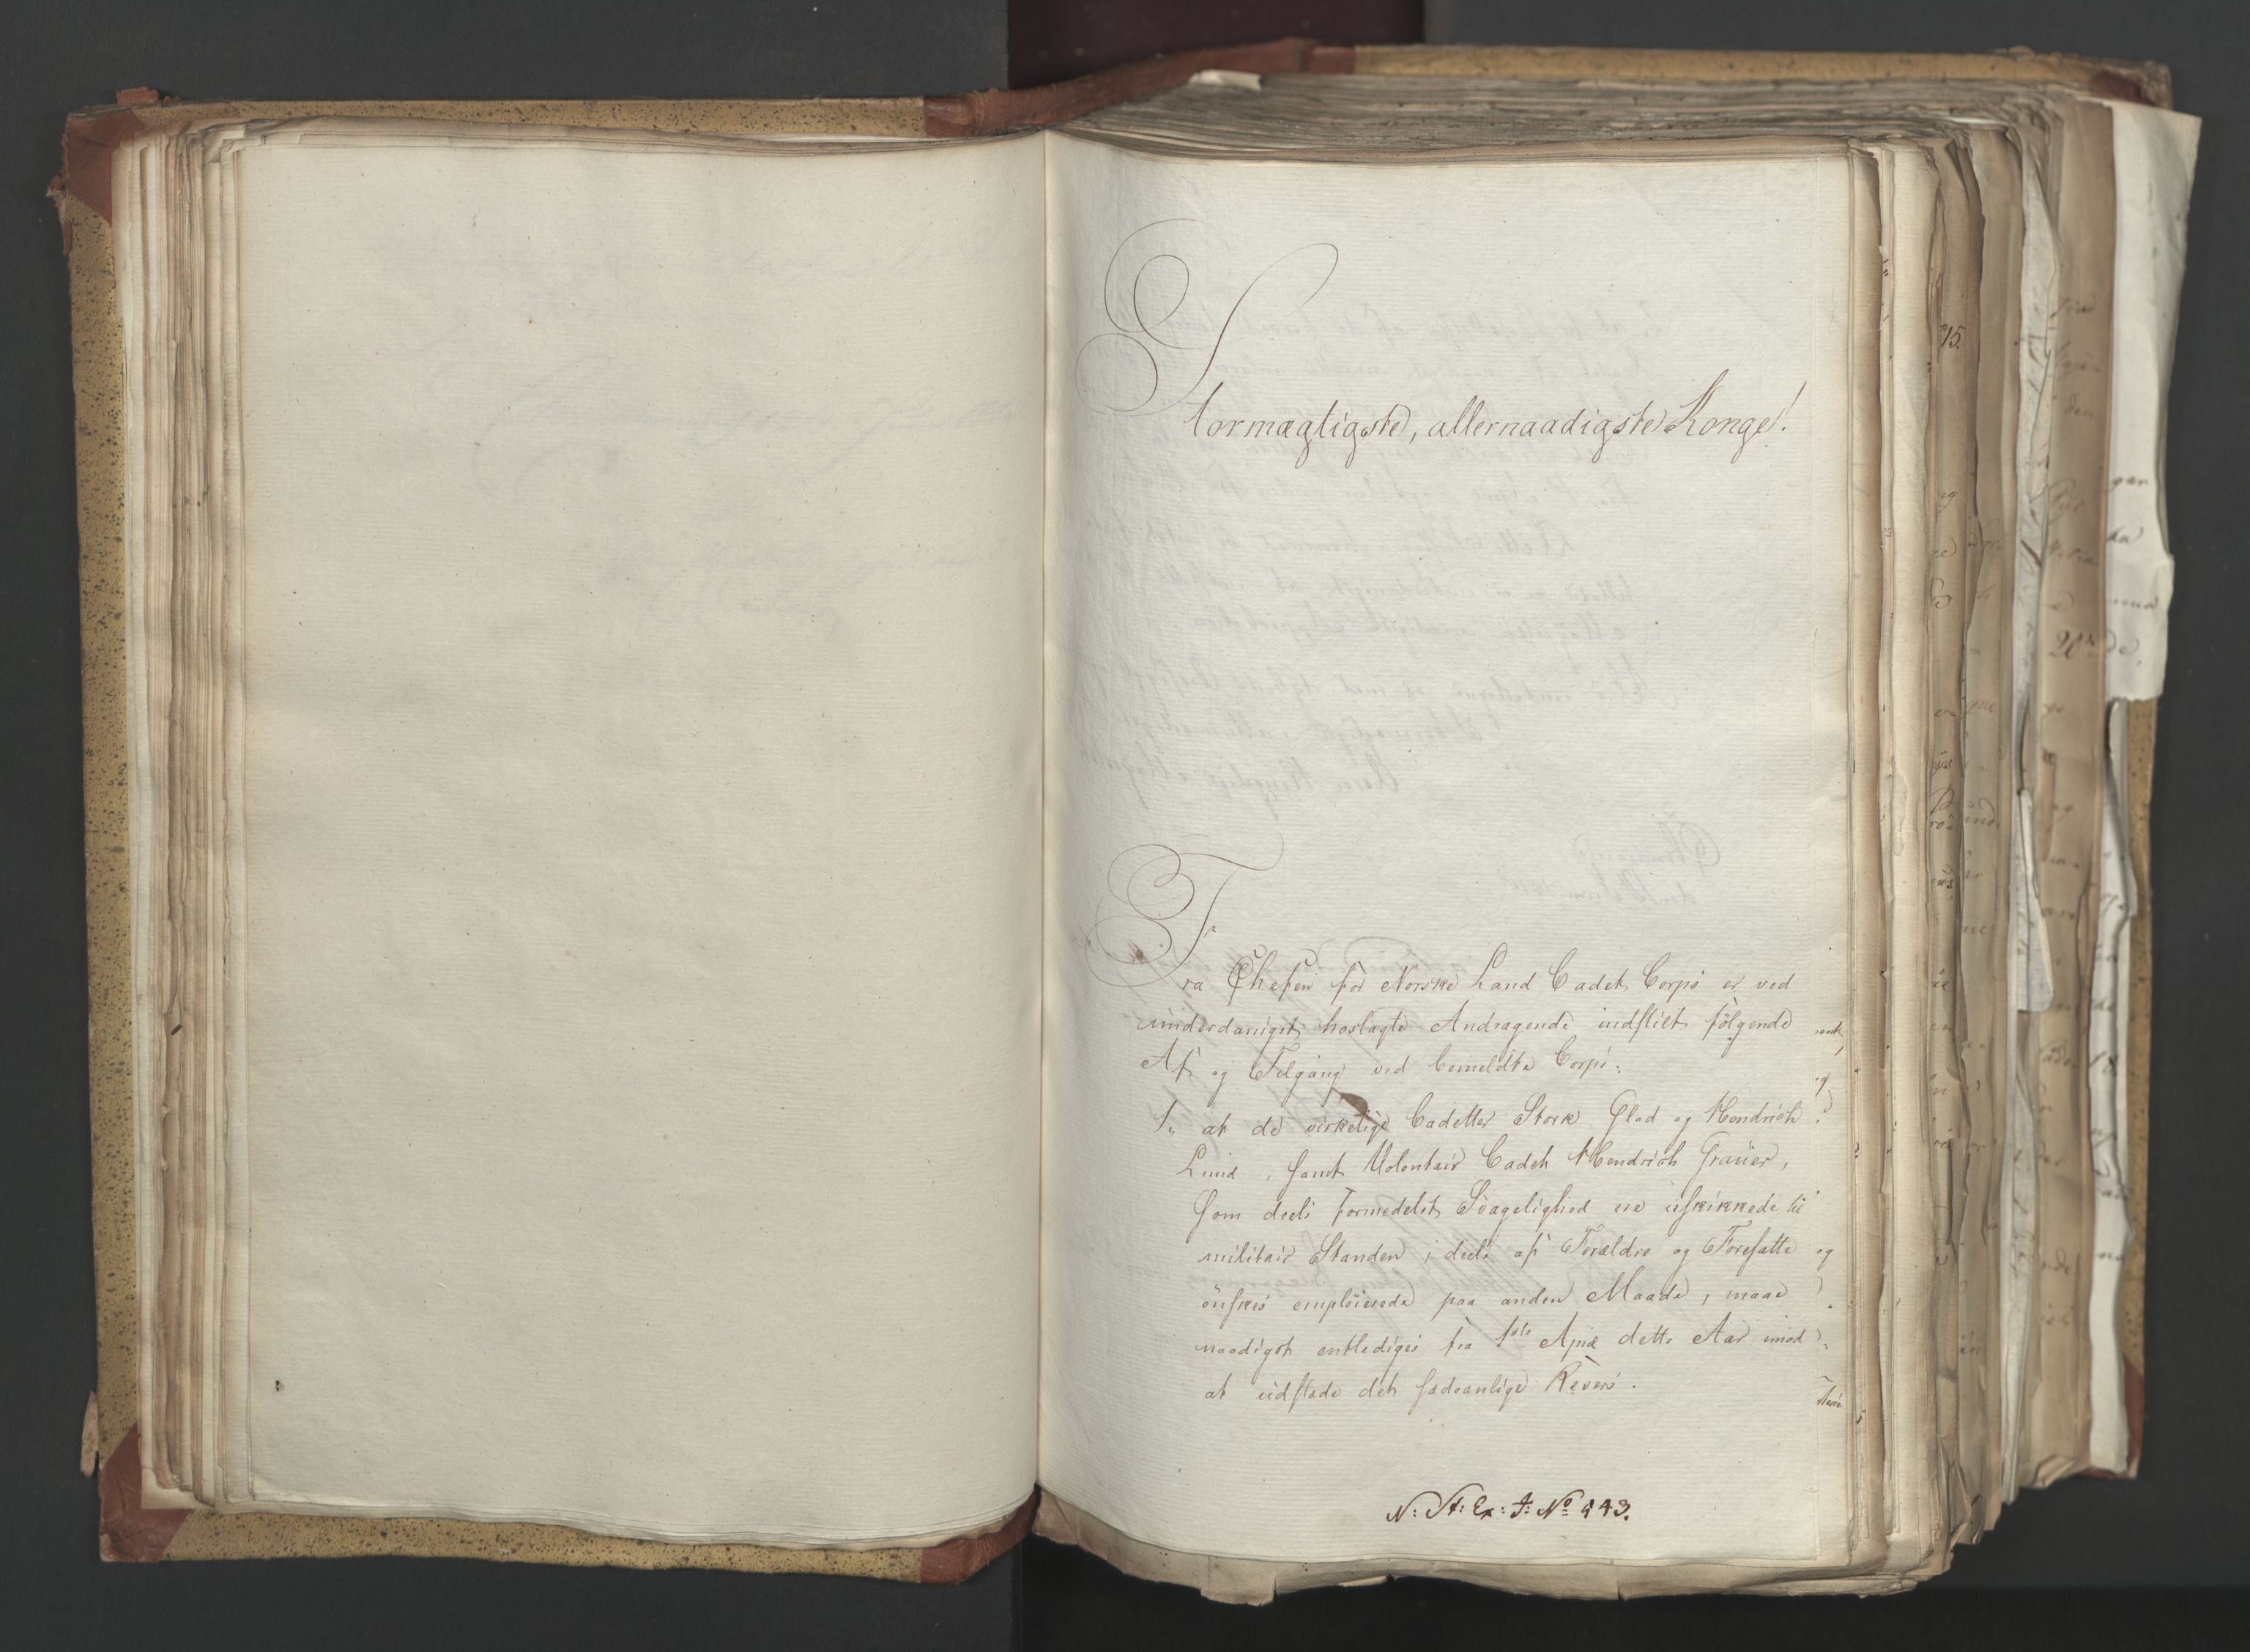 Stormægtigste, allernaadigste Konge!
Fra Chefen for Norske Land Cadet Corps er ved
underdanigst hoslagte Andragende indstilt følgende
Af og Tilgang ved bemeldte Corps:
1, at de virkelige Cadetter Stork Glad og Hendrich
Lund, samt Volontair Cadet Hendrich Graüer,
som deels formedelst Svagelighed ere uskikkede til
militair Standen, deels af Forældre og Foresatte
ønskes emploierede paa anden Maade, maae
naadigst entlediges fra 1ste April dette Aar imod
at udstæde det sædvanlige Revers.
N: St: Ex: J: No 943.
15.
20